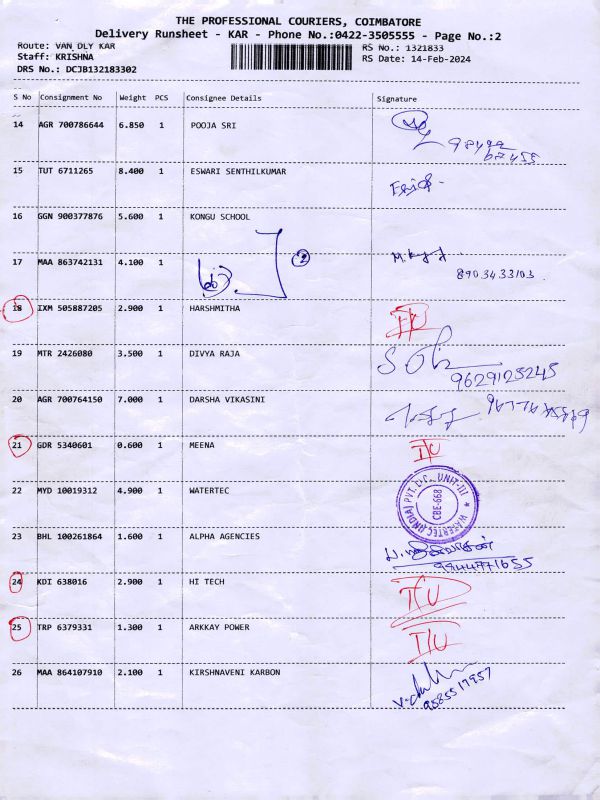 THE PROFESSIONAL COURIERS, COIMBATORE
Delivery Runsheet - KAR - Phone No.:0422-3505555 - Page No.:2
Route: VAN DLY KAR RS No.: 1321833
Staff: KRISHNA RS Date: 14-Feb-2024
DRS No.: DCJB132183302
S No Consignment No Weight PCS Consignee Details Signature
14 AGR 700786644 6.850 1 POOJA SRI
15 TUT 6711265 8.400 1 ESWARI SENTHILKUMAR
16 GGN 900377876 5.600 1 KONGU SCHOOL
17 MAA 863742131 4.100 1 2
8903433103
18 IXM 505887205 2.900 1 HARSHMITHA I/U
19 MTR 2426080 3.500 1 DIVYA RAJA
9629125245
20 AGR 700764150 7.000 1 DARSHA VIKASINI
21 GDR 5340601 0.600 1 MEENA I/U
22 MYD 10019312 4.900 1 WATERTEC WATERTEC (INDIA) PVT. LTD. UNIT-III
CBE-668
23 BHL 100261864 1.600 1 ALPHA AGENCIES
9944771655
24 KDI 638016 2.900 1 HI TECH I/U
25 TRP 6379331 1.300 1 ARKKAY POWER I/U
26 MAA 864107910 2.100 1 KIRSHNAVENI KARBON
9585517957